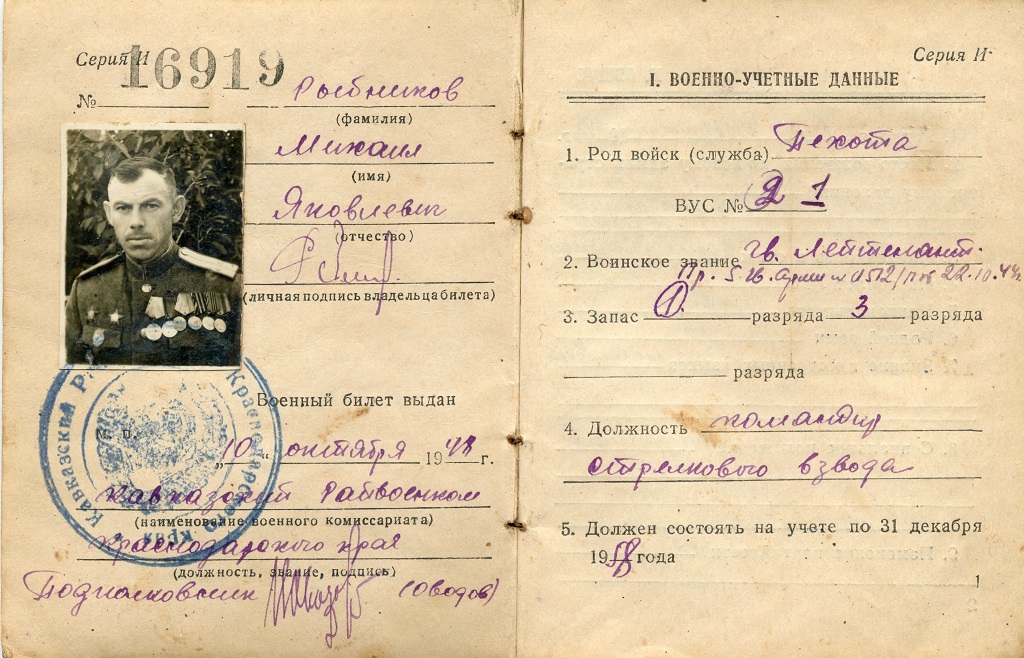 Серия И
16919
№
Рыбников
(фамилия)
Михаил
(имя)
Яковлевич
(отчество)
(личная подпись владельца билета)
Военный билет выдан
М. П.
„10“ октября 1948 г.
Кавказский Райвоенком
(наименование военного комиссариата)
Краснодарского края
(должность, звание, подпись)
Подполковник (Оводов)
Кавказский Краснодарского края
Серия И
I. ВОЕННО-УЧЕТНЫЕ ДАННЫЕ
1. Род войск (служба) Пехота
ВУС № 1
2. Воинское звание гв. Лейтенант.
Пр. 5 Гв. Армии № 0512/ 22.10.44г
3. Запас 1. разряда 3 разряда
разряда
4. Должность командир
стрелкового взвода
5. Должен состоять на учете по 31 декабря
1958 года
1